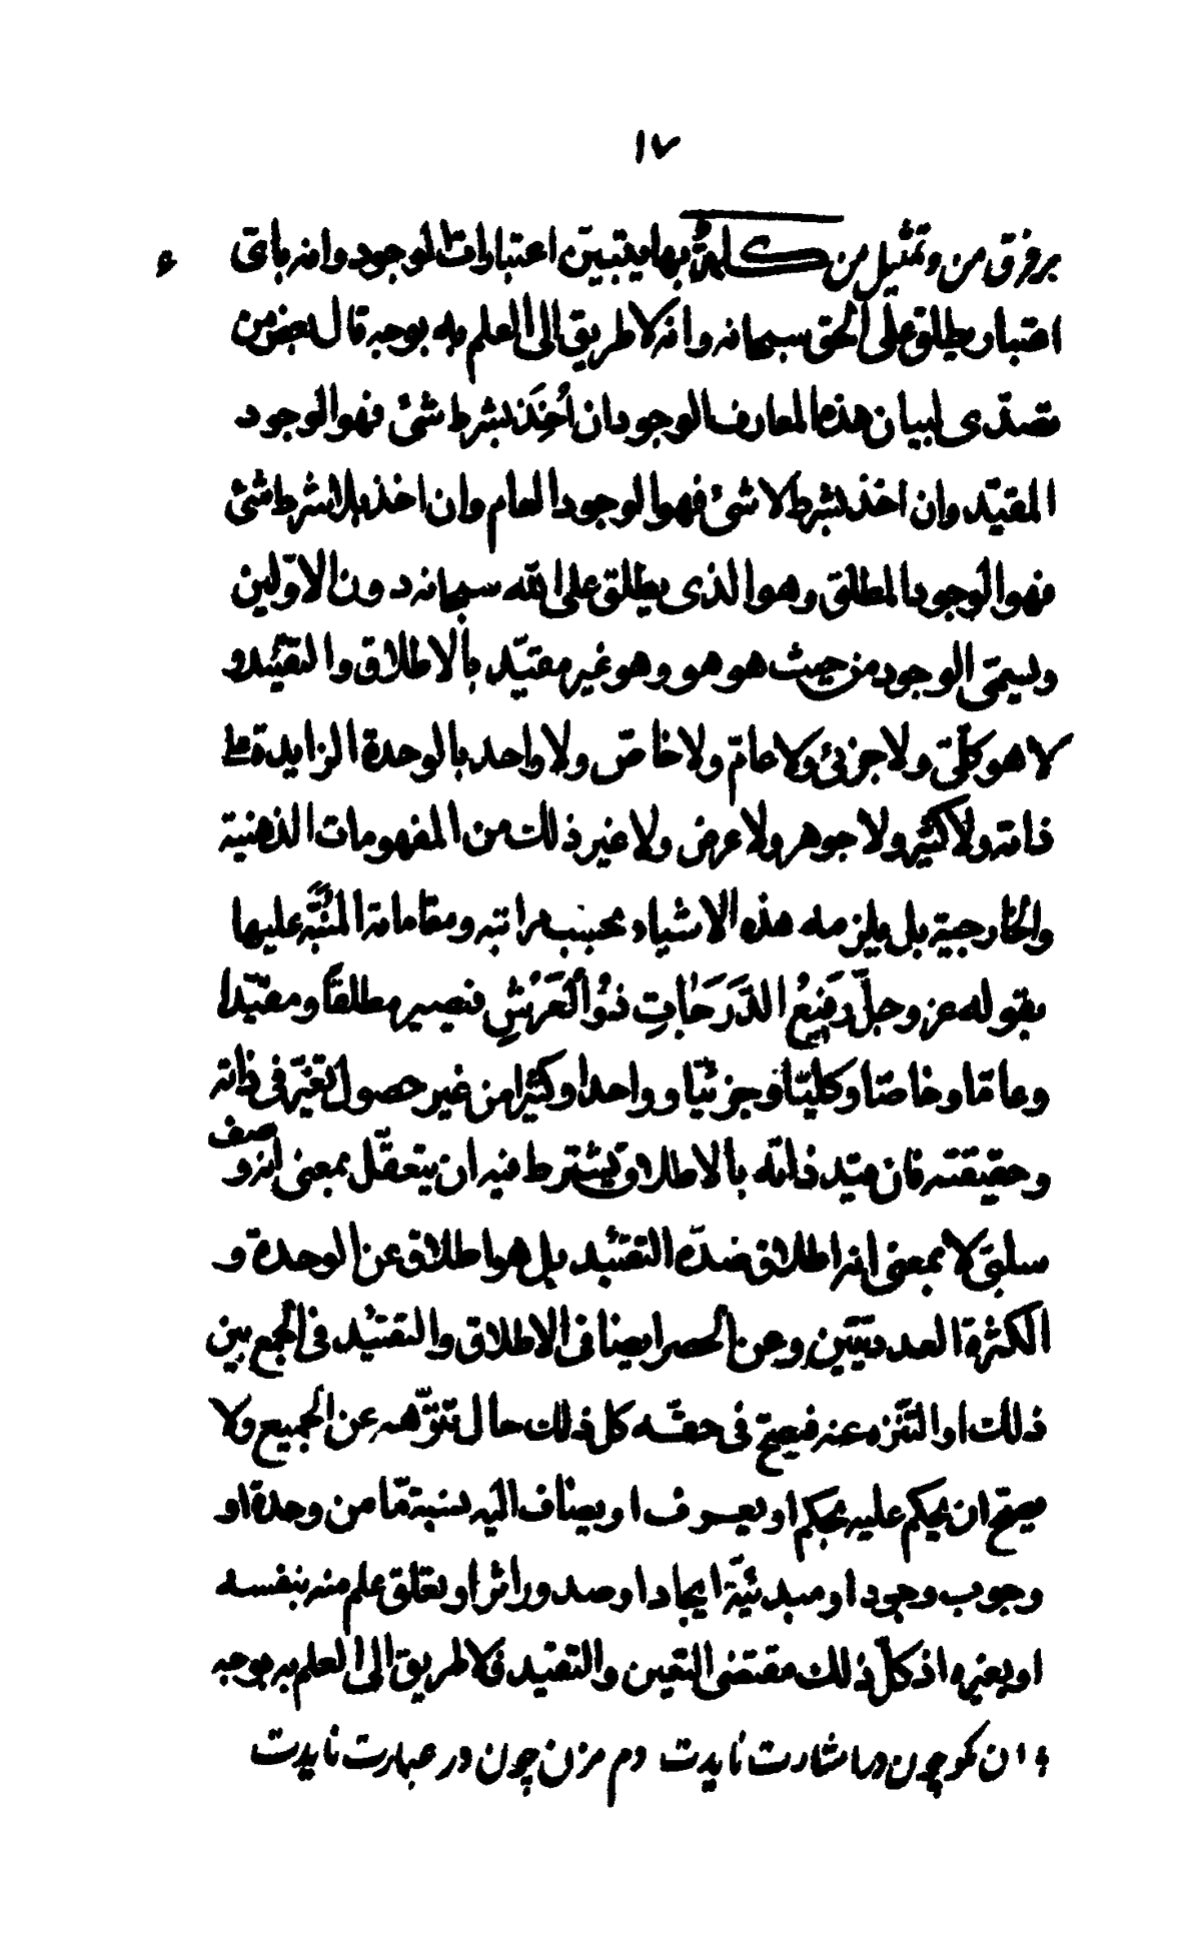 ١٧
بر فرق من و تمثيل من كلمة بها يتبين اعتبارات الوجود وانه باى
اعتبار يطلق على الحق سبحانه وانه لا طريق الى العلم به بوجه قال بعض من
تصدّى لبيان هذه المعارف الوجود ان اُخِذَ بشرط شئ فهو الوجود
المقيّد وان اخذ بشرط لا شئ فهو الوجود العام وان اخذ بلا شرط شئ
فهو الوجود المطلق وهو الذى يطلق على الله سبحانه دون الاوّلين
ويسمّى الوجود من حيث هو هو وهو غير مقيّد بالاطلاق والتقييد و
لا هو كلّى ولا جزئى ولا عامّ ولا خاصّ ولا واحد بالوحدة الزايدة على
ذاته ولا كثير ولا جوهر ولا عرض ولا غير ذلك من المفهومات الذهنية
والخارجية بل يلزمه هذه الاشياء بحسب مراتبه ومقاماته المنبّه عليها
بقوله عز وجلّ رَفِيعُ الدَّرَجَاتِ ذُو الْعَرْشِ فيصير مطلقاً ومقيّدا
وعامّا وخاصّا وكليّا وجزئيّا وواحدا وكثيرا من غير حصول تغيّر فى ذاته
وحقيقته فان قيد ذاته بالاطلاق يشترط فيه ان يتعقّل بمعنى انه وصف
سلبىّ لا بمعنى انه اطلاق ضدّه التقييد بل هو اطلاق عن الوحدة و
الكثرة العدديّتين وعن الحصر ايضا فى الاطلاق والتقييد فى الجمع بين
ذلك او التنزه عنه فيصحّ فى حقّه كل ذلك حال تنزّهه عن الجميع ولا
يصحّ ان يحكم عليه بحكم او يعرف او يضاف اليه نسبة مّا من وحدة او
وجوب وجود او مبدئيّة ايجاد او صدور اثر او تعلق علم منه بنفسه
او بغيره اذ كلّ ذلك مقتضى التعين والتقيد فلا طريق الى العلم به بوجه
ان كو چون در اشارت نايدت دم مزن چون در عبارت نايدت